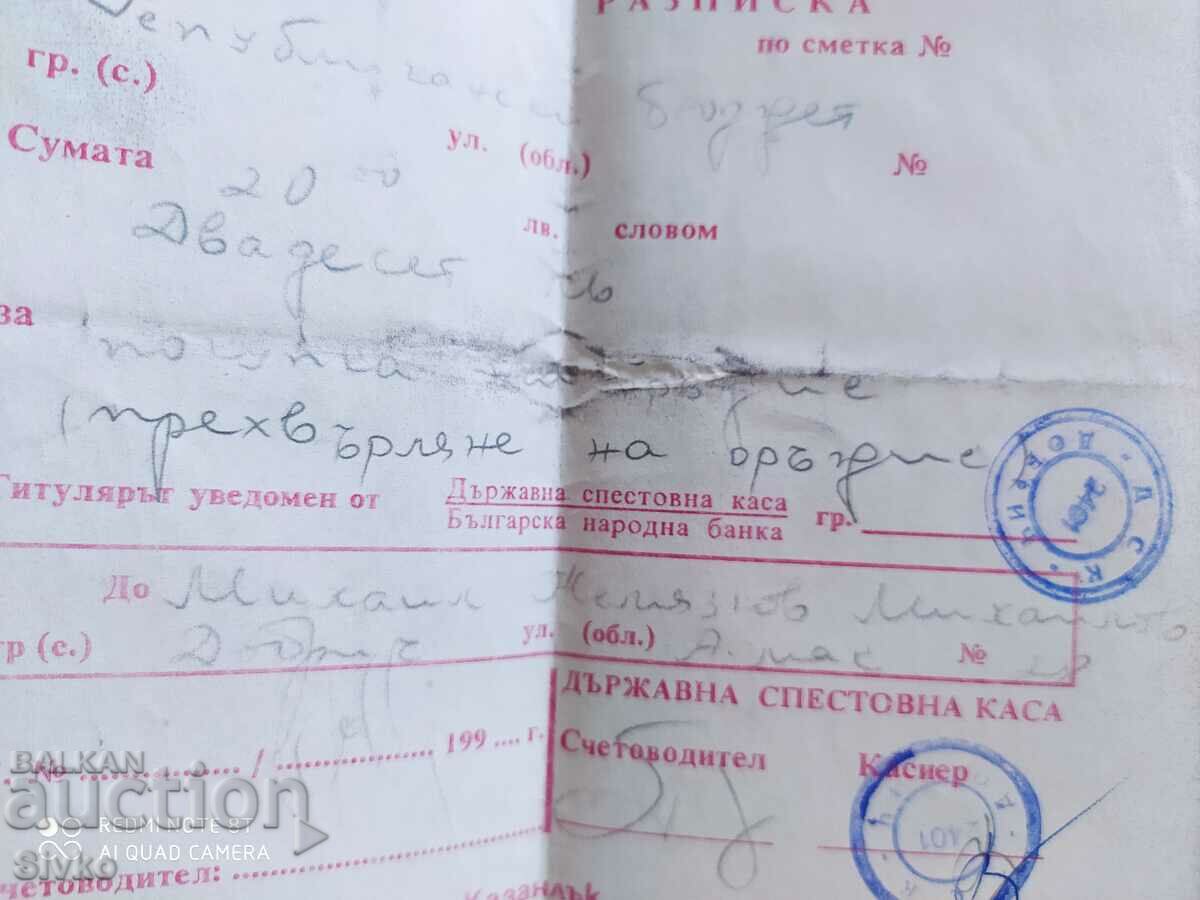 РАЗПИСКА
по сметка №
Републикански бюджет
гр. (с.) ул. (обл.) №
Сумата 20 лв. словом
Двадесет лв
за покупка на оръдие
прехвърляне на оръдие
Титулярът уведомен от Държавна спестовна каса
Българска народна банка гр.
ДСК • ДОБРИЧ •
2401
До Михаил
гр (с.) Добрич ул. (обл.) №
ДЪРЖАВНА СПЕСТОВНА КАСА
№ / 199 г.
Счетоводител Касиер
счетоводител:
Казанлък
BALKAN
auction
REDMI NOTE 8T
AI QUAD CAMERA
Sivko